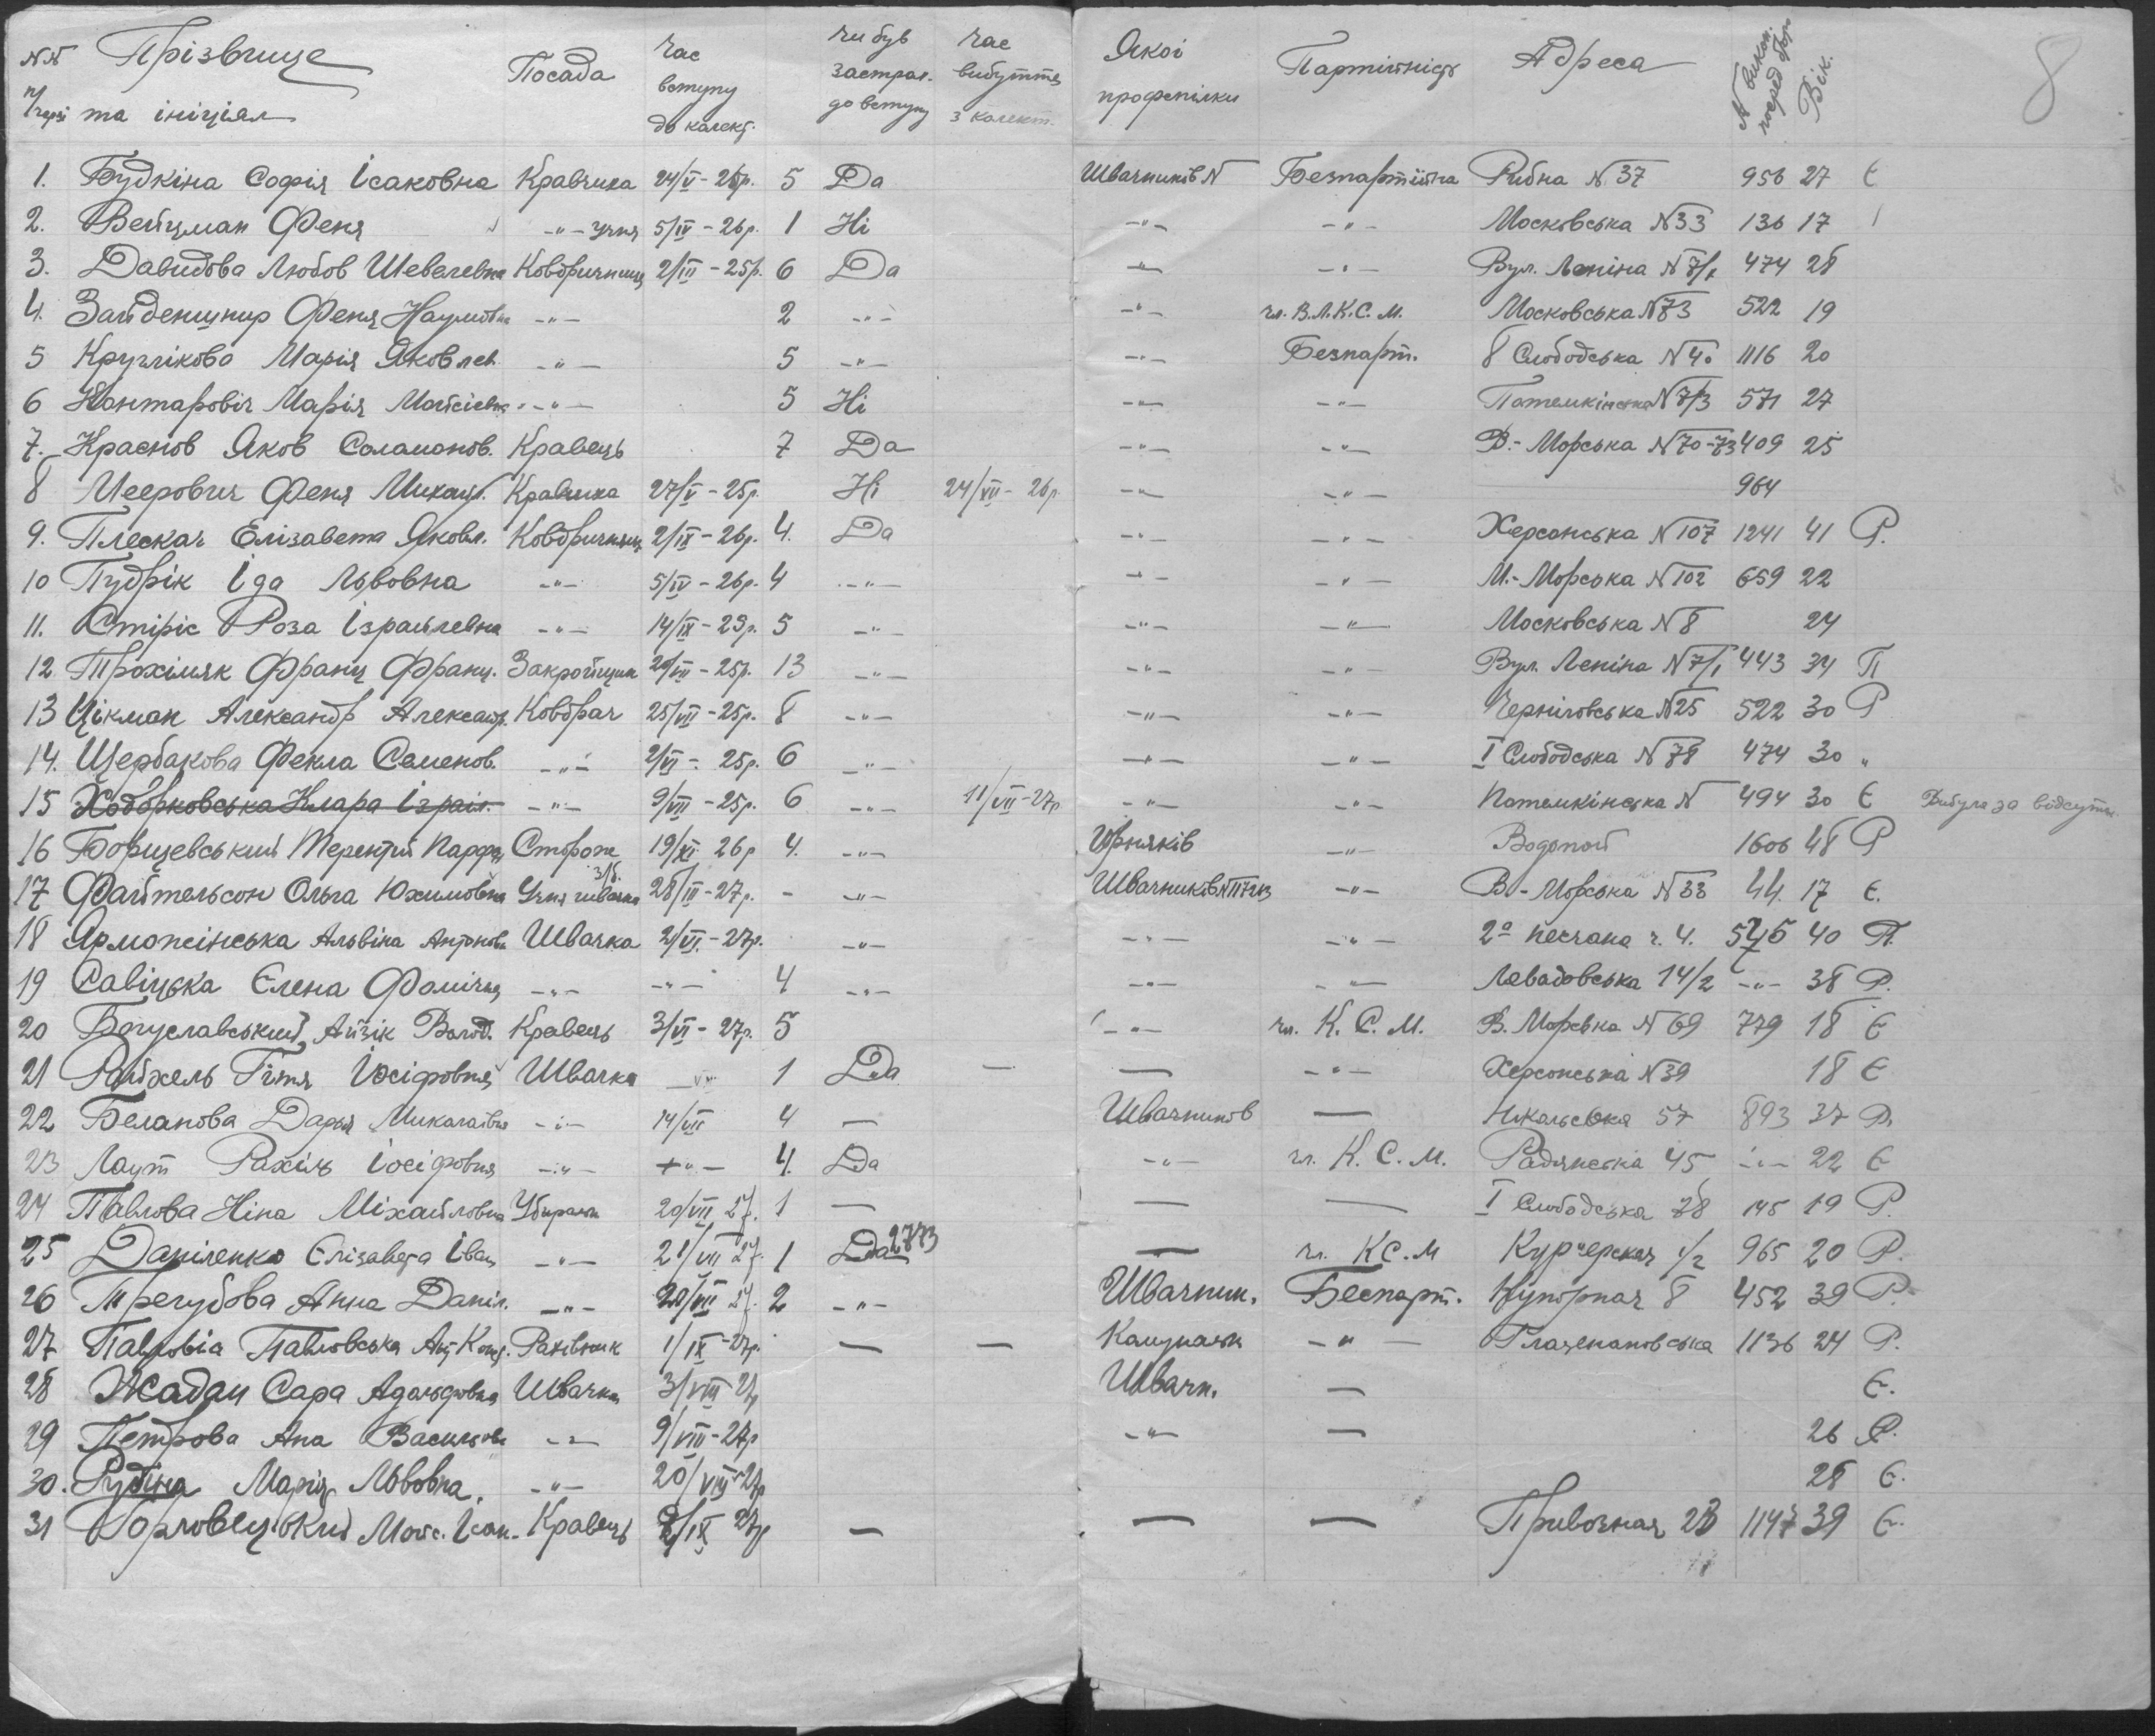 8
№№ п/черзі Прізвище та ініціял Посада Час вступу до колект. чи був застрах. до вступу Час вибуття з колект. Якої профспілки Партійність Адреса № викон. посеред. бор. Вік.
1. Будкіна Софія Ісаковна Кравчиха 24/V - 26р. 5 Да Швачників № Безпартійна Рибна № 37 956 27 Є
2. Вейцман Феня -"- учня 5/IV - 26р. 1 Ні -"- -"- Московська №33 136 17
3. Давидова Любов Шевелевна Ковбричниця 2/III - 25р. 6 Да -"- -"- Вул. Леніна № 7/1 474 28
4. Зайденшнир Феня Наумовна -"- 2 -"- -"- чл. В.Л.К.С.М. Московська №73 522 19
5 Круглікова Марія Яковлев. -"- 5 -"- -"- Безпарт. 8 Слободська № 40 1116 20
6 Кантаровіч Марія Мойсієвна -"- 5 Ні -"- -"- Потемкінська № 7/3 571 27
7. Краснов Яков Соламонов. Кравець 7 Да -"- -"- В.-Морська № 70-73 409 25
8 Меерович Феня Михайл. Кравчиха 27/V - 25р. Ні 24/VII - 26р. -"- -"- 964
9. Плескач Елізавета Яковл. Ковбричниця 2/IX - 26р. 4. Да -"- -"- Херсонська № 107 1241 41 Р.
10 Пудрік Іда Львовна -"- 5/IV - 26р. 4 -"- -"- -"- М.-Морська № 102 659 22
11. Стіріс Роза Ізрайлевна -"- 14/IX - 23р. 5 -"- -"- -"- Московська № 8 24
12 Трохімяк Франц Франц. Закройщик 20/VII - 25р. 13 -"- -"- -"- Вул. Леніна № 7/1 443 34 П
13 Цікман Александр Александр. Ковбрач 25/VII - 25р. 8 -"- -"- -"- Черніговська №25 522 30 Р
14. Щербакова Фекла Семенов. -"- 2/VI - 25р. 6 -"- -"- -"- I Слободська № 78 474 30 "
15 Ходорковська Клара Ізраіл. -"- 9/VII - 25р. 6 -"- 11/VII - 27р -"- -"- Потемкінська № 494 30 Є Вибула за відсутн.
16 Борщевський Терентій Парф. Сторож 19/XI 26р 4. -"- -"- Водопой 1606 48 Р
17 Файтельсон Ольга Юхимовна Учня швачка 28/III - 27р. - -"- Швачників №117213 -"- В-Морська № 33 44. 17 Є.
18 Ярможінська Альвіна Антонов. Швачка 2/VI. - 27р. -"- -"- -"- 2а песчана ч. 4. 40
19 Савіцька Єлена Фомічна -"- -"- 4 -"- -"- -"- Левадовська 14/2 -"- 38 Р.
20 Богуславський Айзік Волод. Кравець 3/VI - 27р. 5 -"- чл. К.С.М. В. Морська № 69 779 18 Є
21 Райхель Гітя Йосіфовна Швачка -"- 1 Да — — -"- Херсонська №39 18 Є
22 Беланова Дарья Миколаївна -"- 14/VII 4 — Швачников — Нікольська 57 893 37 Р.
23 Лаут Рахіль Іосіфовна -"- -"- 4. Да -"- чл. К.С.М. Радянська 45 -"- 22 Є
24 Павлова Ніна Міхайловна Убиральн 20/VII 27. 1 — — — I Слободська 78 145 19 Р.
25 Даніленко Єлізавета Іван -"- 21/VII 27. 1 Да 2773 — чл. КС.М Курьерская 1/2 965 20 Р.
26 Трегубова Анна Даніл. -"- 20/VII 27. 2 -"- Швачник. Беспарт. Купорная 8 452 39 Р.
27 Павловська Рахівник 1/IX - 27р. — — -"- 1136 24 Р.
28 Жадан Сара Адольфовна Швачка 3/VIII 27 Швачн. — Є.
29 Петрова Ана Васильовн -"- 9/VIII - 27р -"- — 26 Р.
30. Рудіна Марія Львовна. -"- 20/VIII 27р 28 Є.
31 Мойс. Ісак. Кравець 2/IX 27р — — — Привозная 28 1147 39 Є.